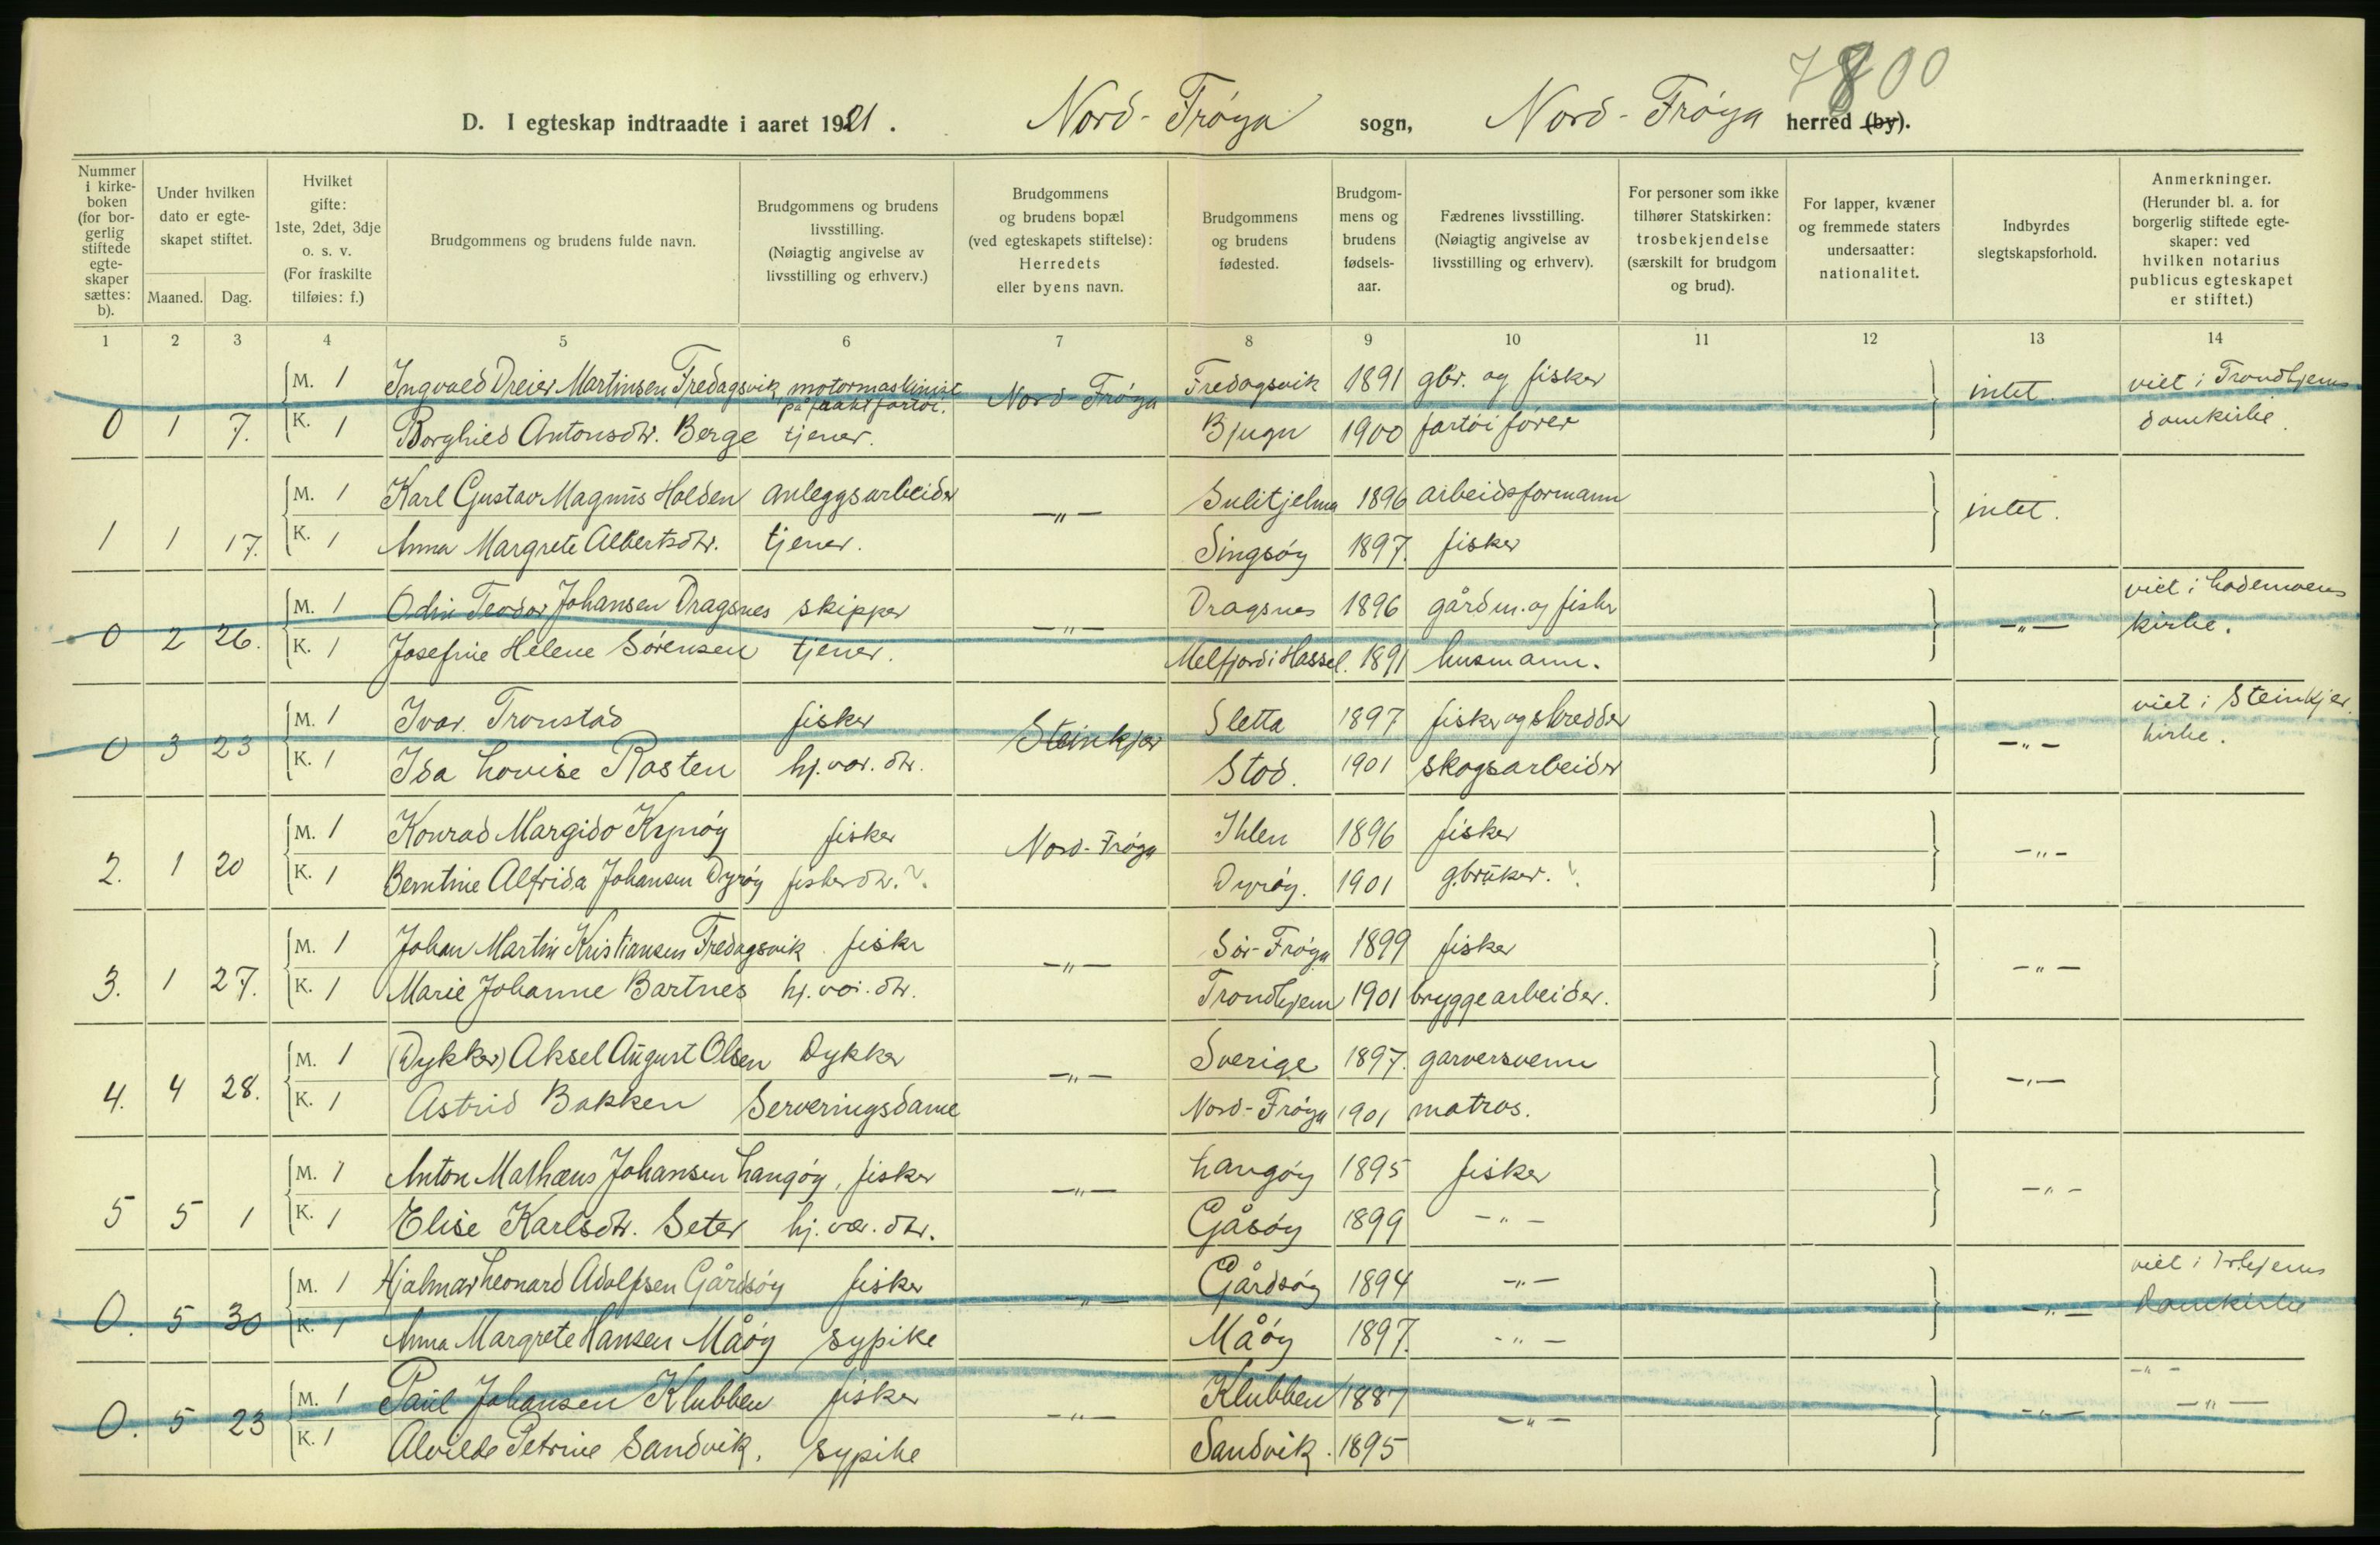 7800
D. I egteskap indtraadte i aaret 1921. Nord-Frøya sogn, Nord-Frøya herred (by).
Nummer i kirkeboken (for borgerlig stiftede egteskaper sættes: b). Under hvilken dato er egteskapet stiftet. Maaned. Dag. Hvilket gifte: 1ste, 2det, 3dje o. s. v. (For fraskilte tilføies: f.) Brudgommens og brudens fulde navn. Brudgommens og brudens livsstilling. (Nøiagtig angivelse av livsstilling og erhverv.) Brudgommens og brudens bopæl (ved egteskapets stiftelse): Herredets eller byens navn. Brudgommens og brudens fødested. Brudgommens og brudens fødselsaar. Fædrenes livsstilling. (Nøiagtig angivelse av livsstilling og erhverv). For personer som ikke tilhører Statskirken: trosbekjendelse (særskilt for brudgom og brud). For lapper, kvæner og fremmede staters undersaatter: nationalitet. Indbyrdes slegtskapsforhold. Anmerkninger. (Herunder bl. a. for borgerlig stiftede egteskaper: ved hvilken notarius publicus egteskapet er stiftet.)
1 2 3 4 5 6 7 8 9 10 11 12 13 14
M. 1 Ingvald Dreier Martinsen Fredagsvik motormaskinist på fraktfartøi. Nord-Frøya Fredagsvik 1891 gbr. og fisker intet. viet i Trondhjems
0 1 7. K. 1 Borghild Antonsdtr. Berge tjener. Bjugn 1900 fartøifører domkirke.
M. 1 Karl Gustav Magnus Holden anleggsarbeider -"- Sulitjelma 1896 arbeidsformann intet.
1 1 17. K. 1 Anna Margrete Albertsdtr. tjener. Singsøy 1897. fisker
M. 1 Odin Teodor Johansen Dragsnes skipper -"- Dragsnes 1896 gårdm. og fisker -"- viet i Lademoens
0 2 26. K. 1 Josefine Helene Sørensen tjener. Melfjord i Hassel. 1891 husmann. kirke.
M. 1 Ivar Tronstad fisker Steinkjer Sletta 1897 fisker og skredder -"- viet i Steinkjer
0 3 23 K. 1 Ida Lovise Rasten hj.vær. dtr. Stod. 1901 skogsarbeider kirke.
M. 1 Konrad Margido fisker Nord-Frøya Ihlen 1896 fisker -"-
2. 1 20 K. 1 Berntine Alfrida Johansen Dyrøy fisker dtr. ?. Dyrøy. 1901 g.bruker. ?
M. 1 Johan Martin Kristiansen Fredagsvik fisker -"- Sør-Frøya 1899 fisker -"-
3. 1 27. K. 1 Marie Johanne Bartnes hj.vær. dtr. Trondhjem 1901 bryggearbeider.
M. 1 (Dykker) Aksel August Olsen Dykker -"- Sverige 1897. garversvenn -"-
4. 4 28. K. 1 Astrid Bakken Serveringsdame Nord-Frøya 1901 matros.
M. 1 Anton Mathæus Johansen Langøy, fisker -"- Langøy 1895 fisker -"-
5 5 1 K. 1 Elise Karlsdtr. Seter hj.vær. dtr. Gåsøy 1899 -"-
M. 1 Hjalmar Leonard Adolfsen Gårdsøy fisker -"- Gårdsøy 1894 -"- -"- viet i Tr.hjems
0. 5 30 K. 1 Anna Margrete Hansen Måøy sypike Måøy 1897. -"- Domkirke
M. 1 Paul Johansen Klubben fisker -"- Klubben 1887 -"- -"- -"- -"-
0. 5 23 K. 1 Alvilde Petrine Sandvik. sypike Sandvik. 1895